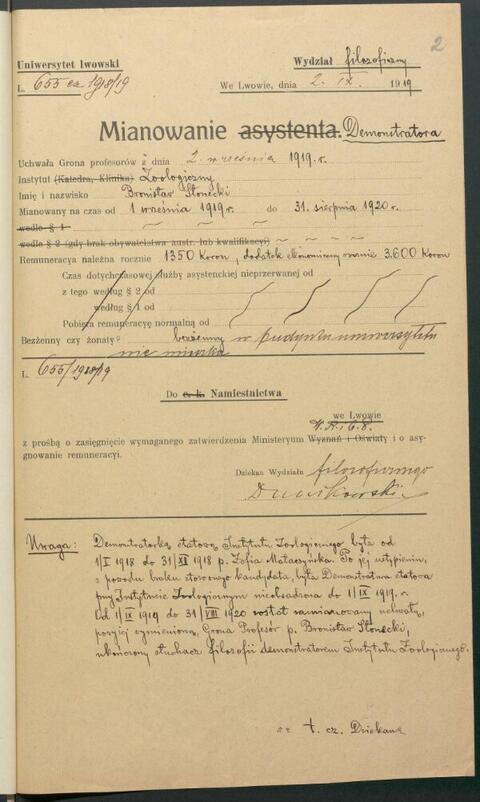 2
Uniwersytet lwowski
Wydział filozoficzny
L. 655 ex 1918/19
We Lwowie, dnia 2. IX. 1919
Mianowanie asystenta. Demonstratora
Uchwała Grona profesorów z dnia 2. września 1919. r.
Instytut (Katedra, Klinika) Zoologiczny
Imię i nazwisko Bronisław Słonecki
Mianowany na czas od 1 września 1919 r. do 31. sierpnia 1920.
wedle § 1
wedle § 2 (gdy brak obywatelstwa austr. lub kwalifikacyi)
Remuneracya należna rocznie 1350 Koron, dodatek ekonomiczny 3.600 Koron
Czas dotychczasowej służby asystenckiej nieprzerwanej od
z tego według § 2 od
według § 1 od
Pobiera remuneracyę normalną od
Bezżenny czy żonaty? bezżenny w budynku uniwersytetu
nie mieszka
L. 655/1918/19
Do c. k. Namiestnictwa
we Lwowie
W. R. i O. P.
z prośbą o zasięgnięcie wymaganego zatwierdzenia Ministeryum Wyznań i Oświaty i o asy-
gnowanie remuneracyi.
Dziekan Wydziału filozoficznego
Dunikowski
Uwaga: Demonstratorką etatową Instytutu Zoologicznego była od
1/I 1918 do 31/XII 1918 p. Zofia Mataczyńska. Po jej ustąpieniu,
z powodu braku stosownego kandydata, była Demonstratura etatowa
przy Instytucie Zoologicznym nieobsadzona do 1/IX 1919. r.
Od 1/IX 1919 do 31/VIII 1920 został zamianowany uchwałą,
powyżej wymienioną, Grona Profesór p. Bronisław Słonecki,
ukończony słuchacz filozofii demonstratorem Instytutu Zoologicznego.
t. cz. Dziekana